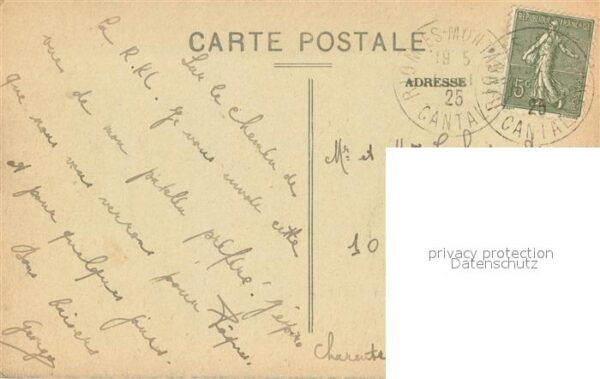 CARTE POSTALE
ADRESSE
RÉPUBLIQUE FRANÇAISE
15c
RIOM-ES-MONTAGNES
19 5
25
CANTAL
25
CANTAL
Sur le chemin de
la R.M. je vous envoie cette
vue de mon patelin préféré. J'espère
que nous vous verrons pour Pâques
et pour quelques jours.
Bons baisers
George
Mr et M
10
Charente
privacy protection
Datenschutz